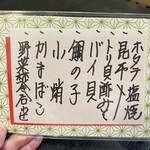 ホタテ塩焼
昆布〆
トリ貝酢みそ
バイ貝
鯛の子
小蛸
かまぼこ
野菜炊合せ